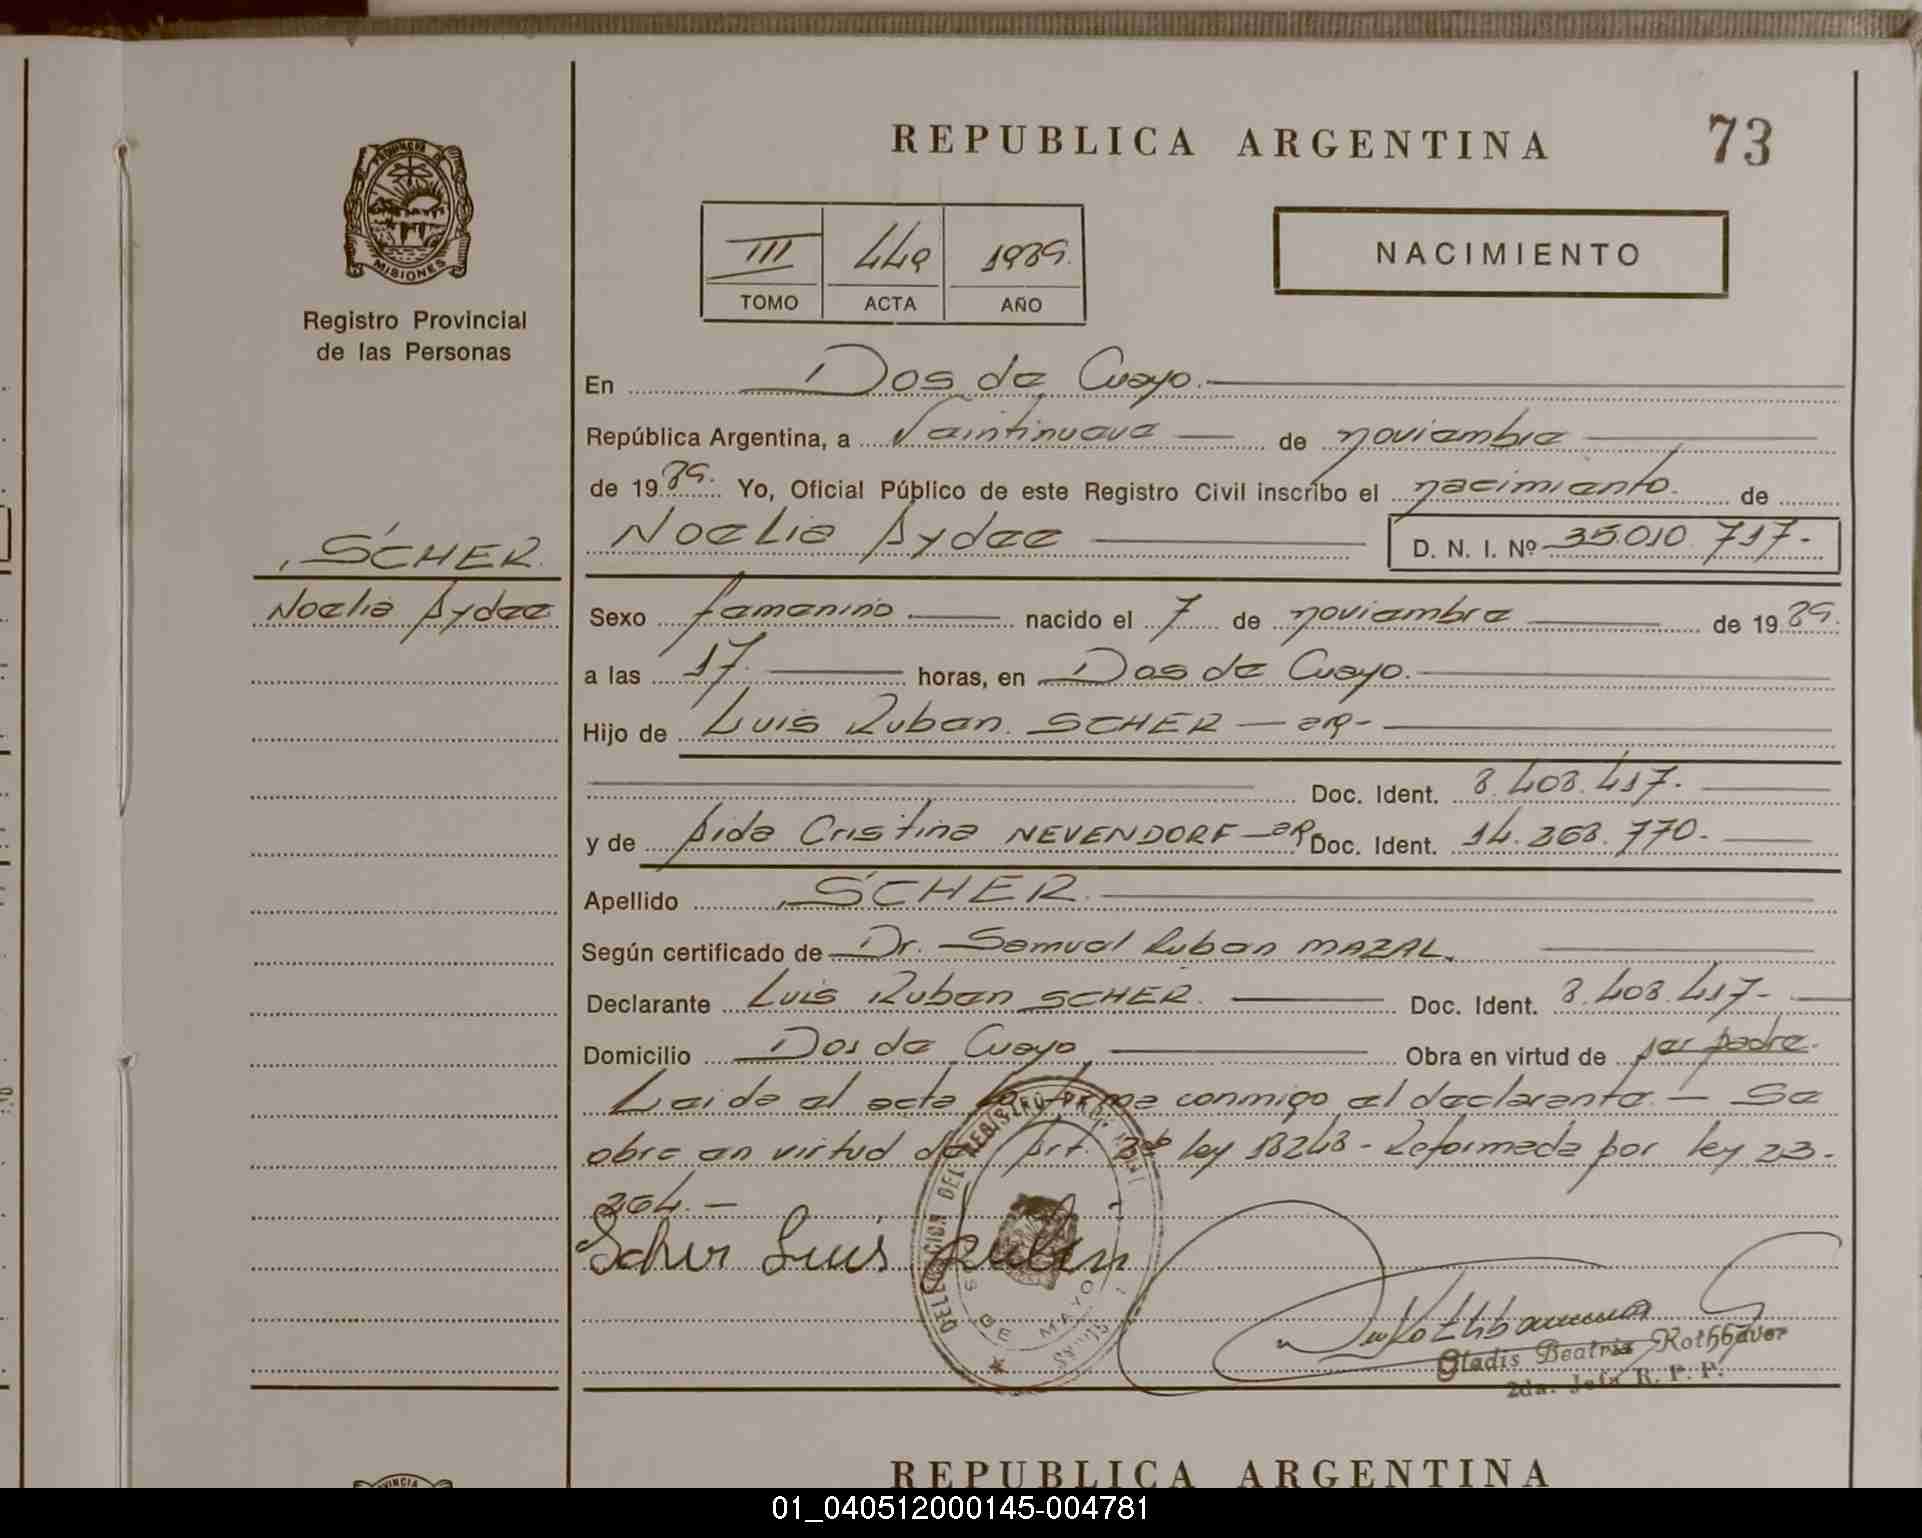 REPUBLICA ARGENTINA
73
PROVINCIA DE
MISIONES
Registro Provincial
de las Personas
III 449 1989.
TOMO ACTA AÑO
NACIMIENTO
En Dos de Mayo.
República Argentina, a Veintinueve de noviembre
de 1989. Yo, Oficial Público de este Registro Civil inscribo el nacimiento. de
SCHER.
Noelia Aydee
Noelia Aydee D. N. I. Nº 35.010.717.-
Sexo femenino nacido el 7 de noviembre de 1989.
a las 17. horas, en Dos de Mayo.
Hijo de Luis Ruben. SCHER - ar-
Doc. Ident. 8.408.417.-
y de Aida Cristina NEVENDORF - ar Doc. Ident. 14.268.770.-
Apellido SCHER.
Según certificado de Dr. Samuel Ruben MAZAL.
Declarante Luis Ruben SCHER. Doc. Ident. 8.408.417-
Domicilio Dos de Mayo Obra en virtud de ser padre.
Leida el acta la firma conmigo el declarante. - Se
obra en virtud del Art. 2do ley 18248 - Reformada por ley 23-
264.-
Scher Luis Ruben
DELEGACION DEL REGISTRO
DE MAYO
Gladis Beatriz Rothbauer
2da. Jefa R. P. P.
REPUBLICA ARGENTINA
01_040512000145-004781